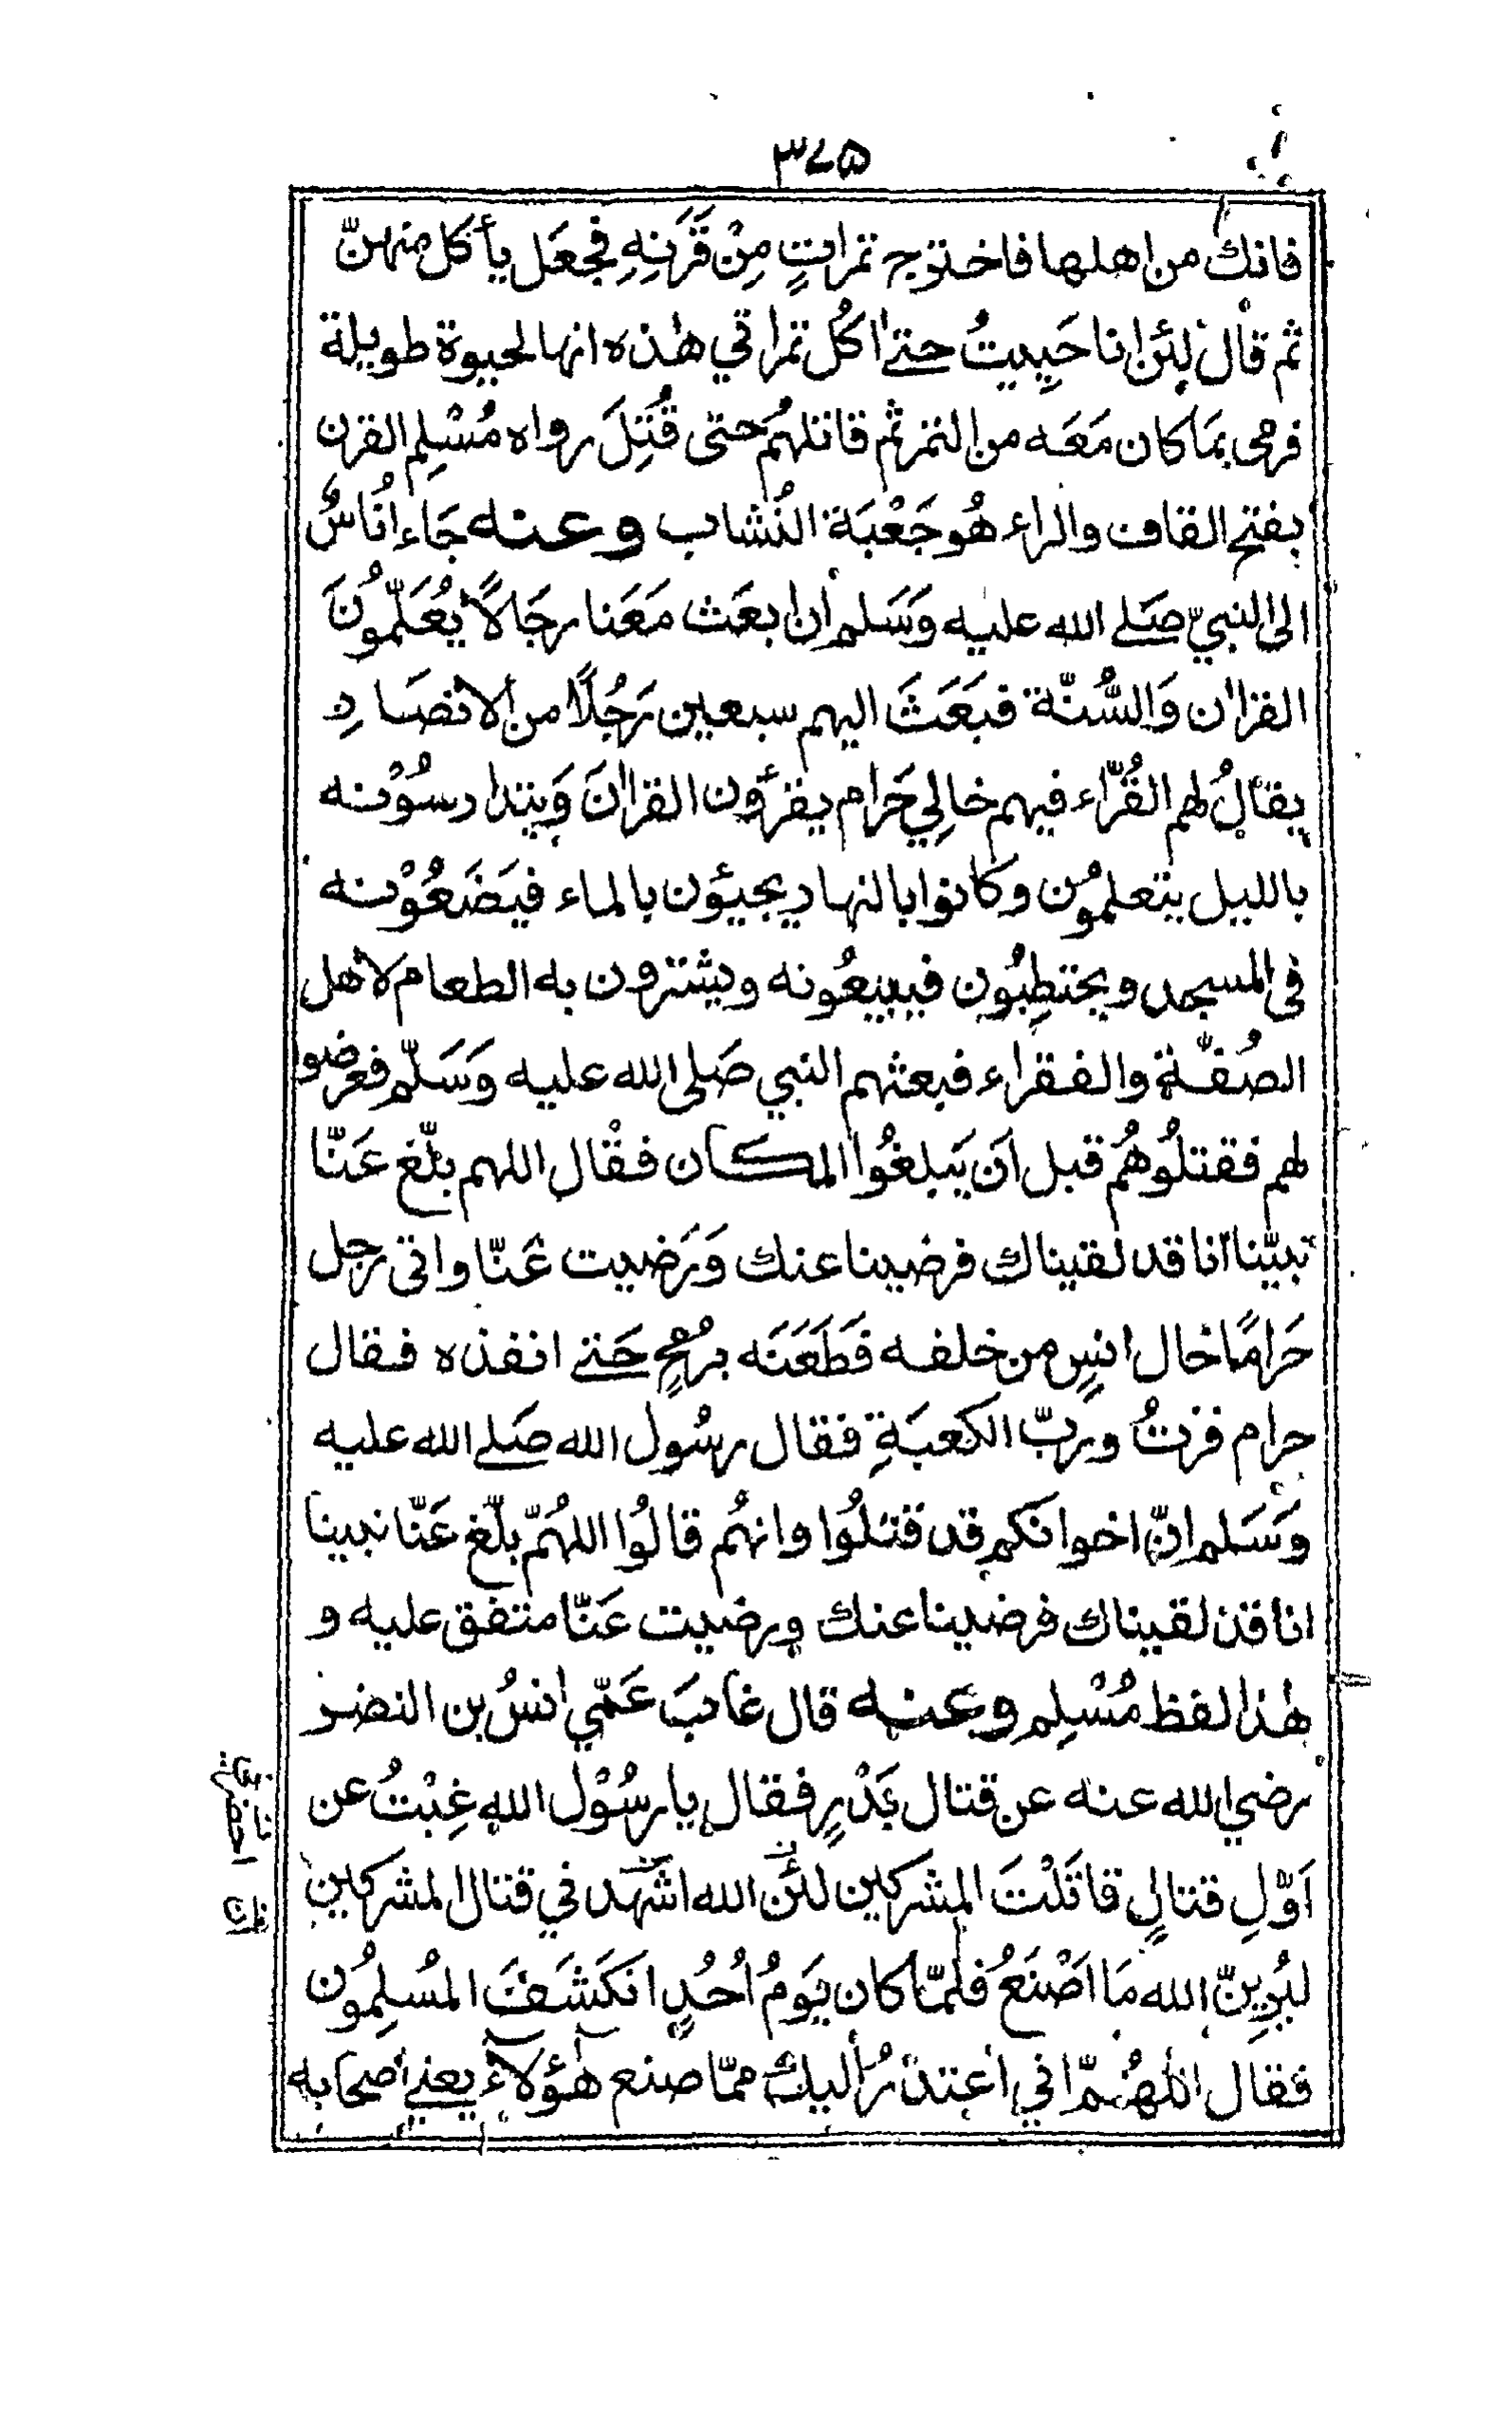 ٣٧٥
فانك من اهلها فاختوج تمراتٍ مِنْ قَرَنِهِ فجعَل يأكل منهنّ
ثم قال لِئن انا حَيِيتُ حتے اٰكُل تمراتي هٰذه انها لحيوة طويلة
فرمى بمَا كان مَعَه من التمر ثم قاتلهُم حتى قُتِلَ رواه مُسْلِم القرن
بفتح القاف والراء هُو جَعْبَة النُشاب وعنه جَاء اُنَاسٌ
الى النبيّ صَلے الله عليه وَسَلم اَن ابعَث مَعَنا رجَالاً يُعَلّمُونَ
القراٰن وَالسُّنّة فبَعَثَ اليهم سبعين رَجُلًا من الانصَارِ
يقالُ لهم القُرّاء فيهم خالِي حَرام يقرؤن القراٰنَ وَيتدارسُوْنه
بالليل يتعلمُون وكانوا بالنهار يجيئون بالماء فيَضَعُوْنه
فى المسجد ويحتطِبُون فيبيعُونه ويشترون به الطعام لاهل
الصُفّة والفقراء فبعثهم النبي صَلى الله عليه وَسَلّم فعرضوا
لهم فقتلُوهُم قبل اَن يَبلغُوا المكان فقال اللهم بلّغ عَنّا
نبيّنا انا قد لقيناك فرضينا عنك وَرَضيت عَنّا واتى رجل
حَرامًا خال انسٍ من خلفه فَطَعَنَه برُمْحٍ حَتے انفذه فقال
حرام فزتُ وربّ الكعبَةِ فقال رسُول الله صَلے الله عليه
وَسَلم انّ اخوانكم قد قتلُوا وانهُم قالُوا اللهُمّ بلّغ عَنّا نبينا
انا قد لقيناك فرضينا عنك ورضيت عَنّا متفق عليه و
هٰذا لفظ مُسْلِم وعنه قال غابَ عَمّي انسُ بن النضر
رضي الله عنه عن قتال بَدْرٍ فقال يا رسُوْل اللهِ غِبْتُ عن
اَوّلِ قتالٍ قاتَلْتَ المشركين لئن الله اشهد ني قتال المشركين
ليُرِينّ الله مَا اَصْنَعُ فلمّا كان يَومُ اُحُدٍ انكَشَفَ المُسلِمُون
فقال اللهُمّ اني اَعتذرُ اليك ممّا صنع هٰؤلآء يعنے اصحابه